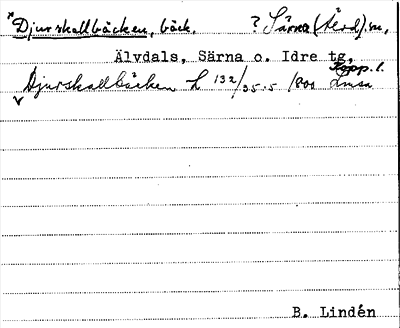 *Djurskallbäcken, bäck. ? Särna (Åsd) sn,
Älvdals, Särna o. Idre tg,
Kopp. l.
Djurskallbäcken L 132/35.5 1800 Lmsa
B. Lindén